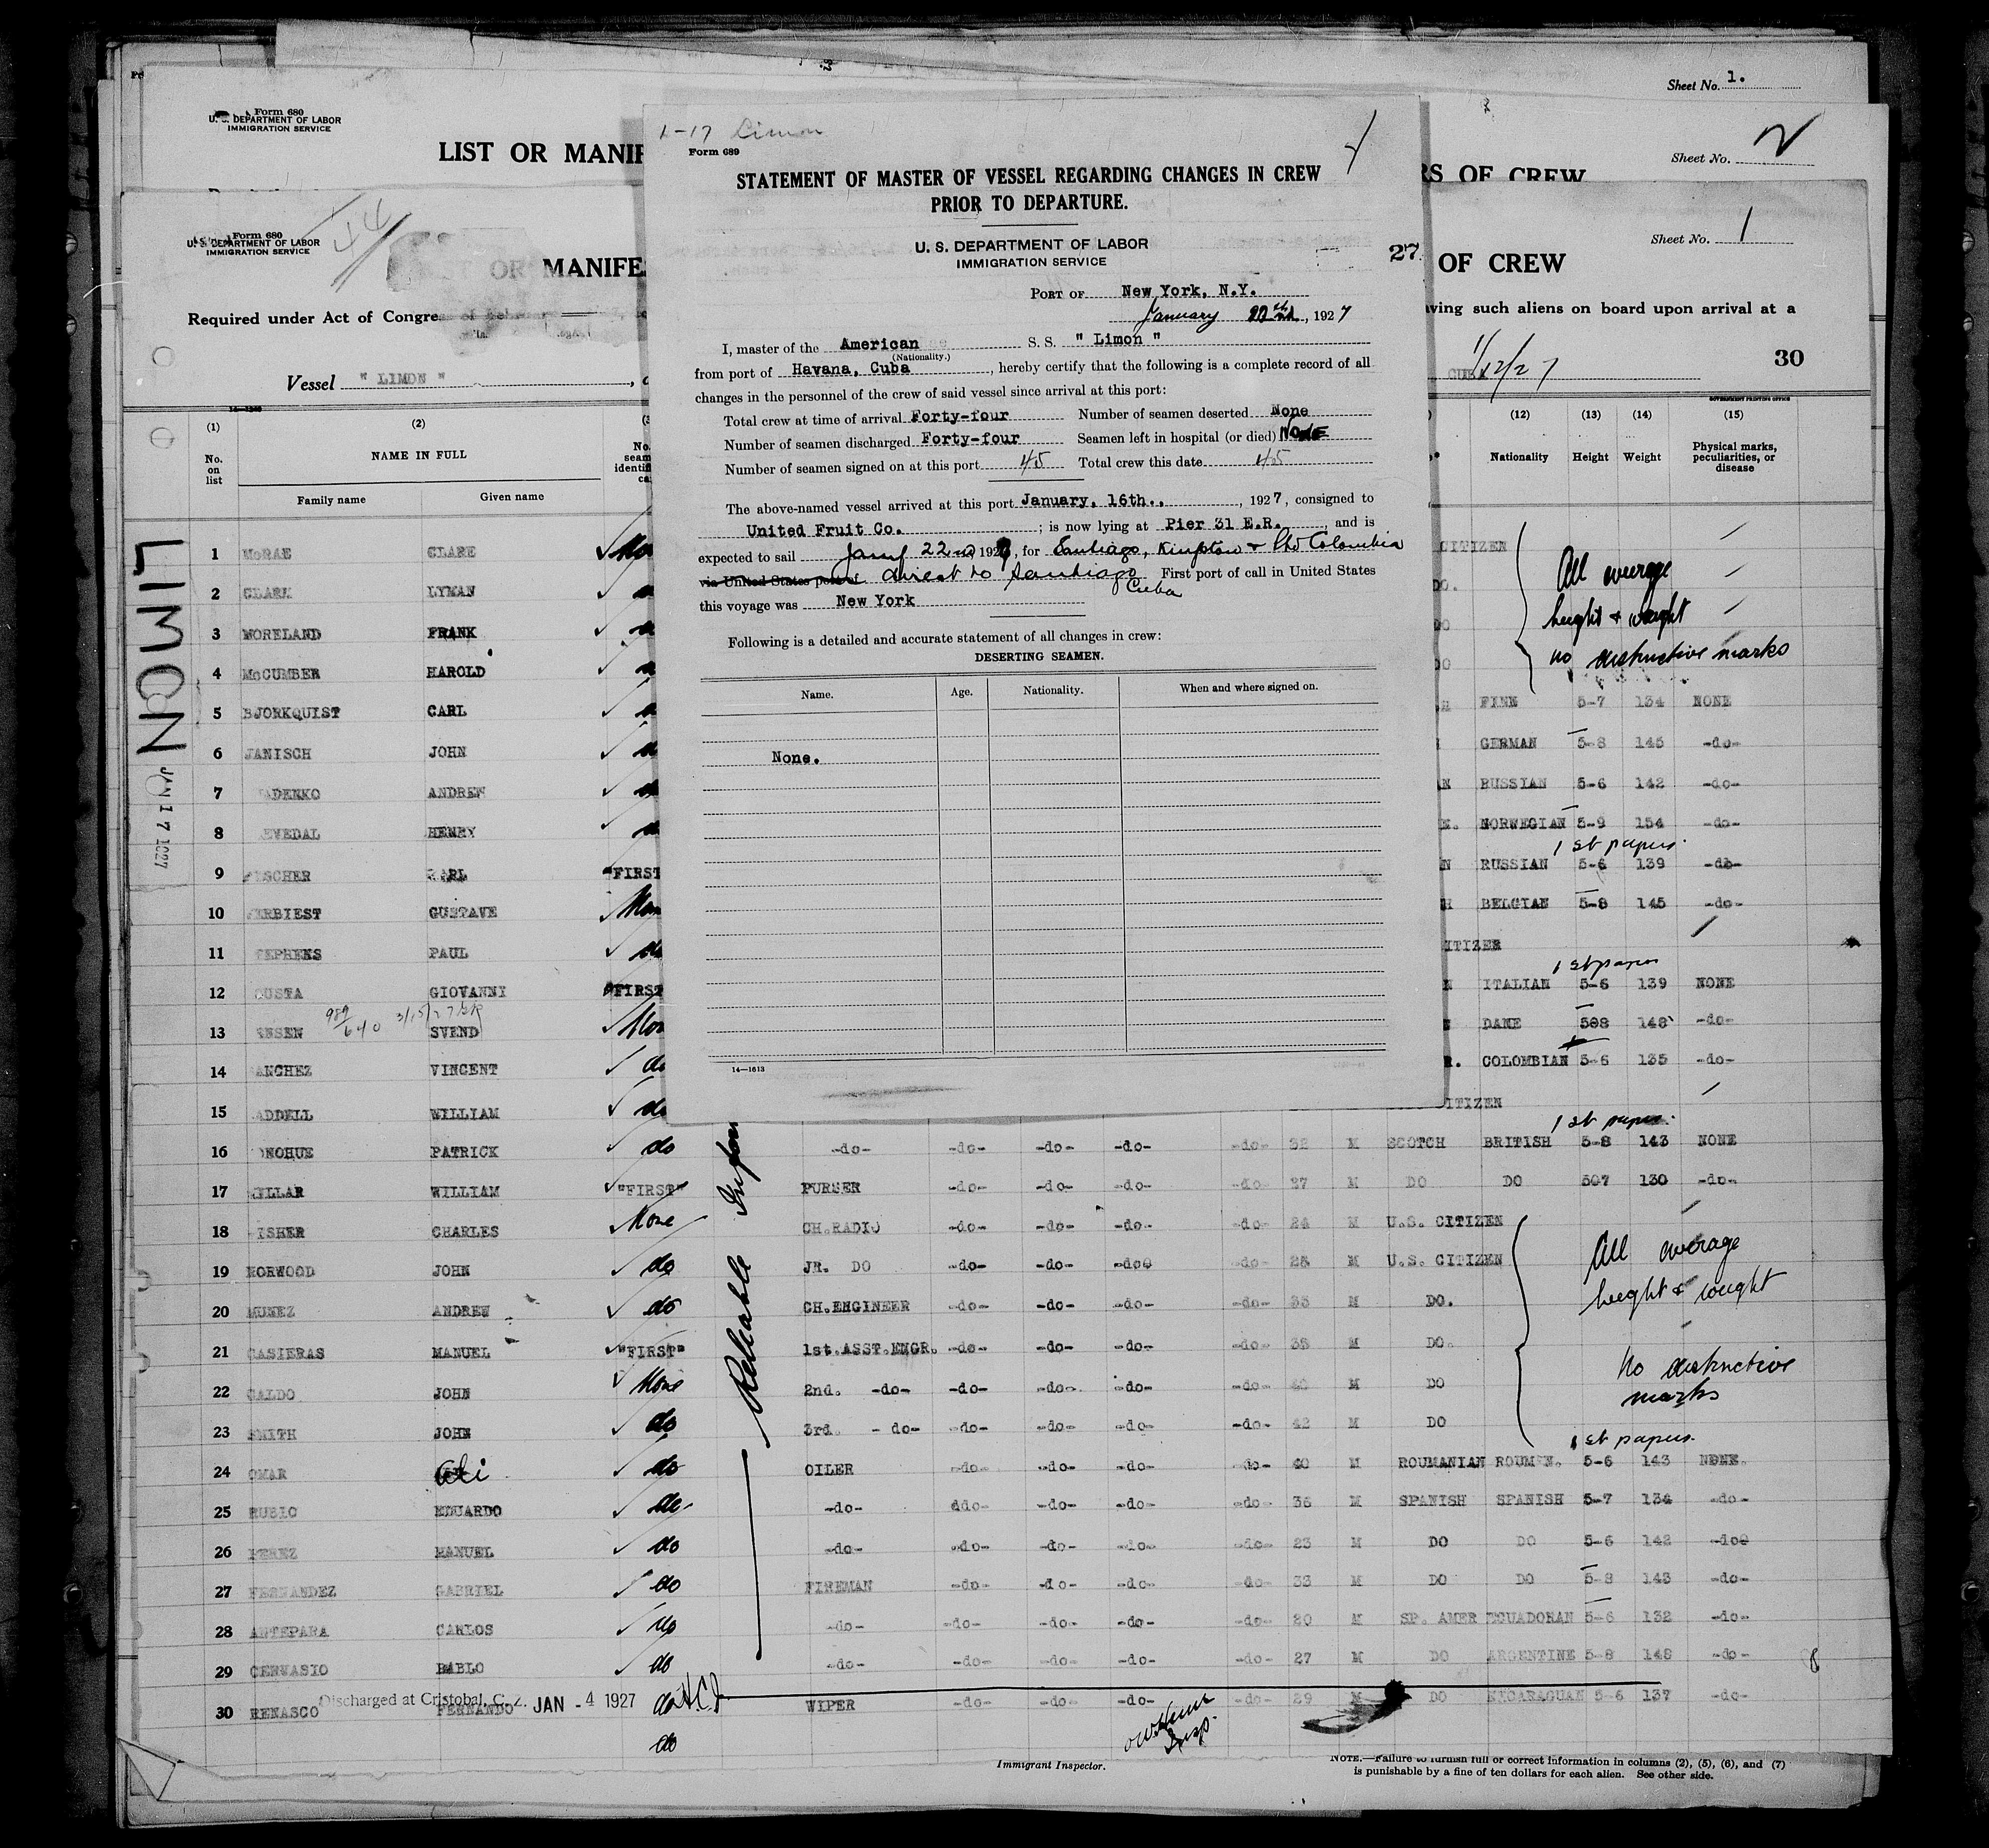 Sheet No. 1.
Form 680
U. S. DEPARTMENT OF LABOR
IMMIGRATION SERVICE
LIST OR MANIF
RS OF CREW
Sheet No. 2
Form 680
U. S. DEPARTMENT OF LABOR
IMMIGRATION SERVICE
44
OR MANIFE
OF CREW
Sheet No. 1
Required under Act of Congre
aving such aliens on board upon arrival at a
Vessel " LIMON "
CUBA 1/12/27
30
1-17 Limon
Form 689
STATEMENT OF MASTER OF VESSEL REGARDING CHANGES IN CREW
PRIOR TO DEPARTURE.
U. S. DEPARTMENT OF LABOR
IMMIGRATION SERVICE
27
PORT OF New York, N.Y.
January , 1927
I, master of the American S. S. " Limon "
(Nationality.)
from port of Havana, Cuba , hereby certify that the following is a complete record of all
changes in the personnel of the crew of said vessel since arrival at this port:
Total crew at time of arrival Forty-four Number of seamen deserted None
Number of seamen discharged Forty-four Seamen left in hospital (or died) None
Number of seamen signed on at this port 45 Total crew this date 45
The above-named vessel arrived at this port January, 16th., , 1927, consigned to
United Fruit Co. ; is now lying at Pier 31 E.R. , and is
expected to sail Jany 22nd 1927, for Santiago, Kingston + Pto Colombia
via United States ports of direct to Santiago Cuba First port of call in United States
this voyage was New York
Following is a detailed and accurate statement of all changes in crew:
DESERTING SEAMEN.
Name. Age. Nationality. When and where signed on.
None.
14—1613
GOVERNMENT PRINTING OFFICE
(1) (2) (12) (13) (14) (15)
No. on list NAME IN FULL Nationality Height Weight Physical marks, peculiarities, or disease
Family name Given name
LIMON
JAN 17 1927
1 McRAE CLARE CITIZEN
2 CLARK LYMAN DO.
3 MORELAND FRANK DO
4 McCUMBER HAROLD DO
All average
height + weight
no distinctive marks
5 BJORKQUIST CARL FINN 5-7 134 NONE
6 JANISCH JOHN GERMAN 5-8 145 -do-
7 ADENKO ANDREW RUSSIAN 5-6 142 -do-
8 EVEDAL HENRY NORWEGIAN 5-9 154 -do-
1 st papers.
9 SCHER KARL "FIRST RUSSIAN 5-6 139 -do-
10 ERBIEST GUSTAVE BELGIAN 5-8 145 -do-
11 TEPHENS PAUL ITIZEN
1 st papers
12 OUSTA GIOVANNI "FIRST ITALIAN 5-6 139 NONE
989/640 3/15/27
13 ENSEN SVEND DANE 508 148 -do-
14 ANCHEZ VINCENT do COLOMBIAN 5-6 135 -do-
15 ADDELL WILLIAM do ITIZEN
1 st papers.
16 ONOHUE PATRICK do -do- -do- -do- -do- -do- 32 M SCOTCH BRITISH 5-8 143 NONE
17 MILLAR WILLIAM "FIRST" PURSER -do- -do- -do- -do- 27 M DO DO 507 130 -do-
18 FISHER CHARLES None CH.RADIO -do- -do- -do- -do- 24 M U.S. CITIZEN
19 NORWOOD JOHN do JR. DO -do- -do- -do0 -do- 25 M U.S. CITIZEN
20 MUNEZ ANDREW do CH.ENGINEER -do- -do- -do- -do- 35 M DO.
21 CASIERAS MANUEL "FIRST" 1st.ASST.ENGR. -do- -do- -do- -do- 38 M DO.
22 CALDO JOHN None 2nd. -do- -do- -do- -do- -do- M DO
23 SMITH JOHN do 3rd. -do- -do- -do- -do- -do- 42 M DO
All average
height + weight
No distinctive
marks
1 st papers.
24 OMAR Ali do OILER -do- -do- -do- -do- 40 M ROUMANIAN ROUMEN. 5-6 143 NONE.
25 RUBIO EDUARDO do -do- ddo- -do- -do- -do- 36 M SPANISH SPANISH 5-7 134 -do-
26 PEREZ MANUEL do -do- -do- -do- -do- -do- 23 M DO DO 5-6 142 -do0
27 FERNANDEZ GABRIEL do FIREMAN -do- -do- -do- -do- 33 M DO DO 5-8 143 -do-
28 ANTEPARA CARLOS No -do- -do- -do- -do- -do- 20 M SP. AMER ECUADORAN 5-6 132 -do-
29 GERVASIO PABLO do -do- -do- -do- -do- -do- 27 M DO ARGENTINE 5-8 148 -do-
30 RENASCO FERNANDO do WIPER -do- -do- -do- -do- 29 M DO NICARAGUAN 5-6 137 -do-
Discharged at Cristobal, C. Z. JAN -4 1927
do
Reliable
Insp.
Immigrant Inspector.
NOTE.—Failure to furnish full or correct information in columns (2), (5), (6), and (7)
is punishable by a fine of ten dollars for each alien. See other side.